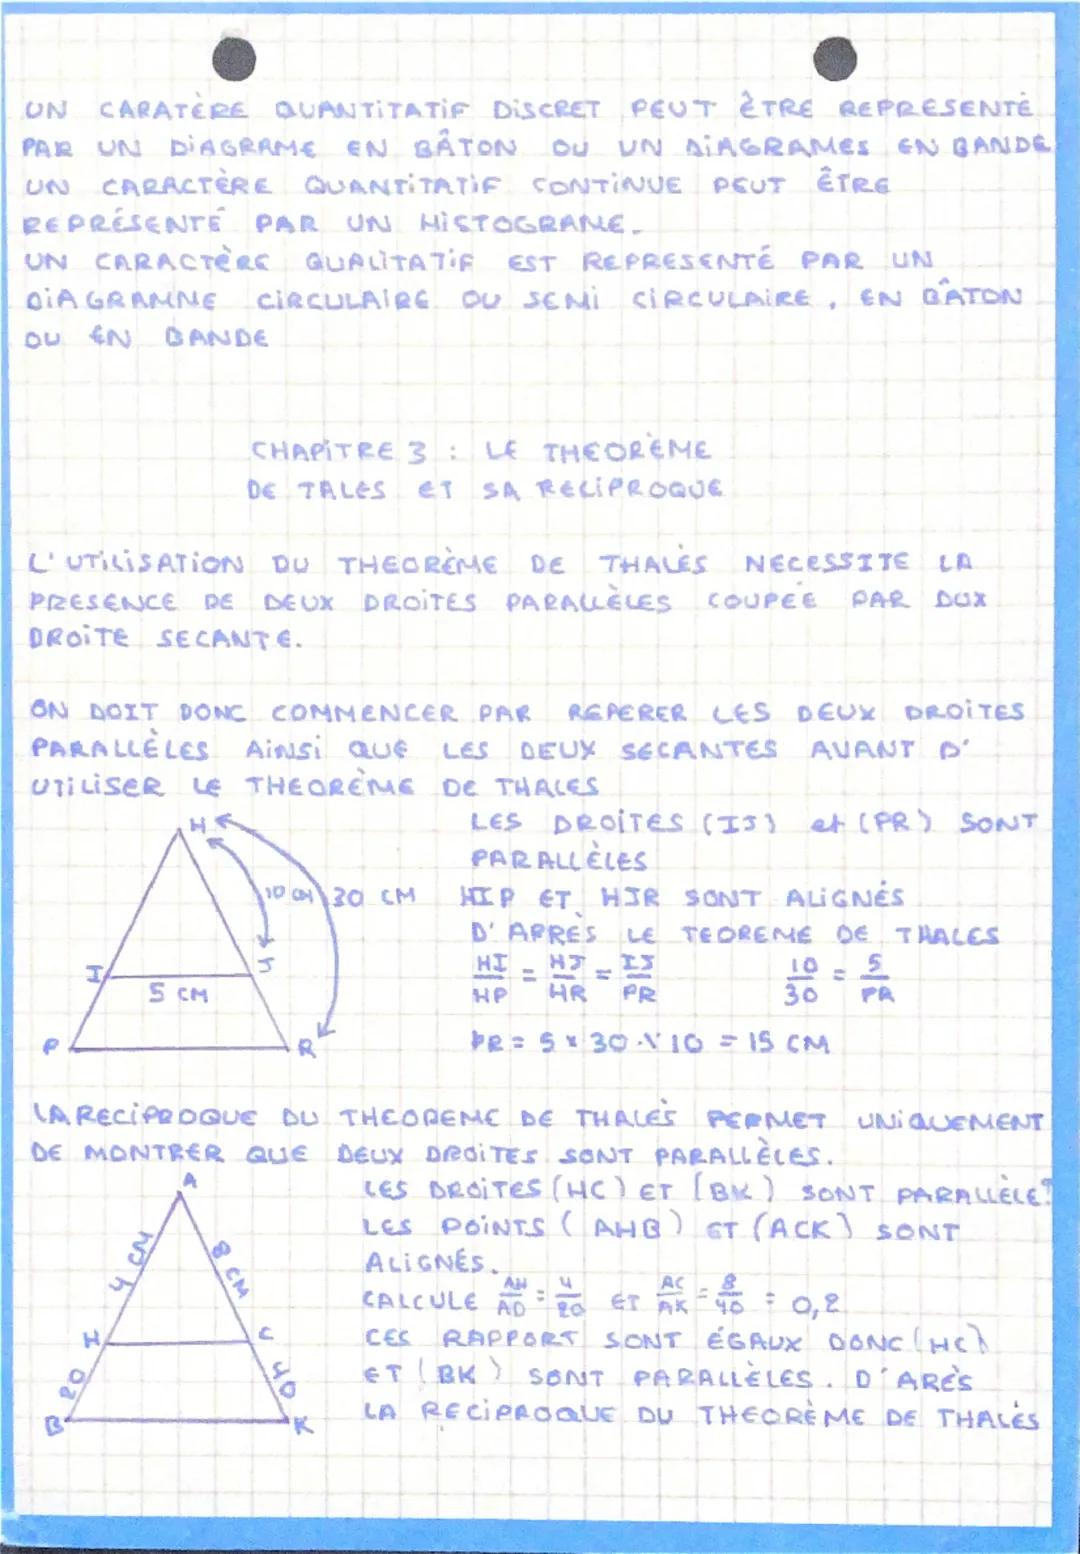 UN CARATÈRE QUANTITATIF DISCRET PEUT ÊTRE REPRESENTÉ
PAR UN DIAGRAME EN BÂTON OU UN DIAGRAMES EN BANDE
UN CARACTÈRE QUANTITATIF CONTINUE PEUT ÊTRE
REPRÉSENTÉ PAR UN HISTOGRAME.
UN CARACTÈRE QUALITATIF EST REPRESENTÉ PAR UN
DIAGRAMME CIRCULAIRE OU SEMI CIRCULAIRE, EN BÂTON
OU EN BANDE
CHAPITRE 3 : LE THEORÈME
DE TALES ET SA RECIPROQUE
L'UTILISATION DU THEORÈME DE THALÈS NECESSITE LA
PRESENCE DE DEUX DROITES PARALLÈLES COUPEE PAR DUX
DROITE SECANTE.
ON DOIT DONC COMMENCER PAR REPERER LES DEUX DROITES
PARALLÈLES AINSI QUE LES DEUX SECANTES AVANT D'
UTILISER LE THEORÈME DE THALES
H
10 CM
30 CM
I
J
5 CM
P
R
LES DROITES (IJ) et (PR) SONT
PARALLÈLES
HIP ET HJR SONT ALIGNÉS
D'APRÈS LE TEOREME DE THALES
HI/HP = HJ/HR = IJ/PR 10/30 = 5/PR
PR = 5 × 30 ÷ 10 = 15 CM
LA RECIPROQUE DU THEOREME DE THALÈS PERMET UNIQUEMENT
DE MONTRER QUE DEUX DROITES SONT PARALLÈLES.
A
4 CM
8 CM
H
C
20
40
B
K
LES DROITES (HC) ET (BK) SONT PARALLÈLE?
LES POINTS (AHB) ET (ACK) SONT
ALIGNÉS.
CALCULE AH/AD = 4/20 ET AC/AK = 8/40 = 0,2
CES RAPPORT SONT ÉGAUX DONC (HC)
ET (BK) SONT PARALLÈLES. D'ARÈS
LA RECIPROQUE DU THEORÈME DE THALÈS